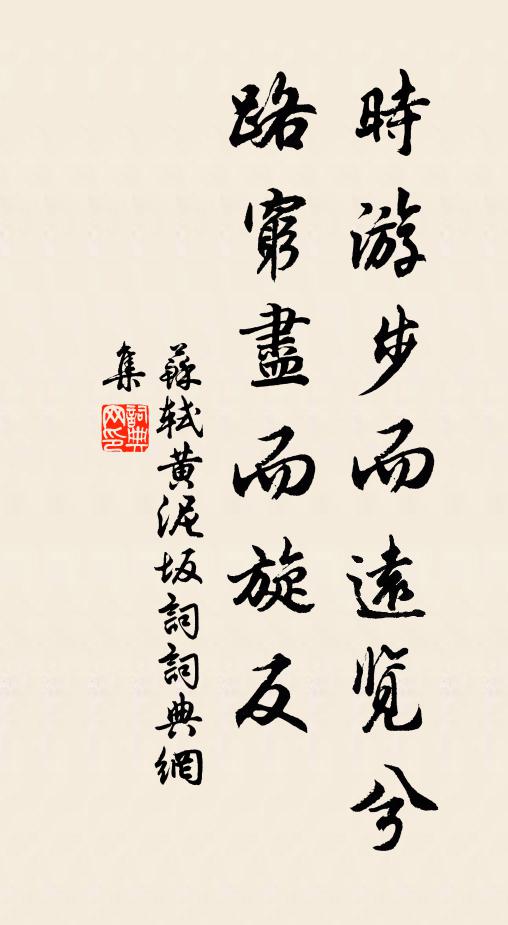 時游步而遠览兮
路窮盡而旋反
蘇軾黄泥坂詞詞典網
集
詞典网印